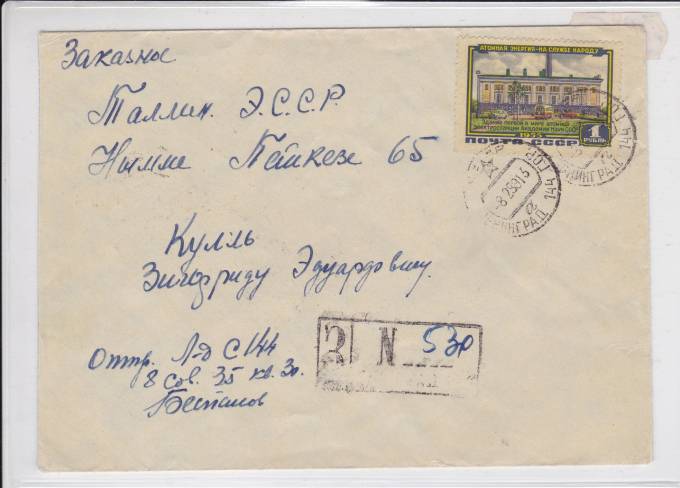 Заказное
АТОМНАЯ ЭНЕРГИЯ-НА СЛУЖБЕ НАРОДУ
Здание первой в мире атомной
электростанции Академии Наук СССР
1955
ПОЧТА СССР
1
РУБЛЬ
Таллин. Э.С.С.Р.
Нымме Пейкезе 65
ЛЕНИНГРАД 144 ГОР
-8 2 56 01 5
ЛЕНИНГРАД 144 ГОР
Кулль
Зигфриду Эдуардовичу.
З N 530
Отпр. Л-д С 144
8 Сов. 35 кв. 30.
Беспалов